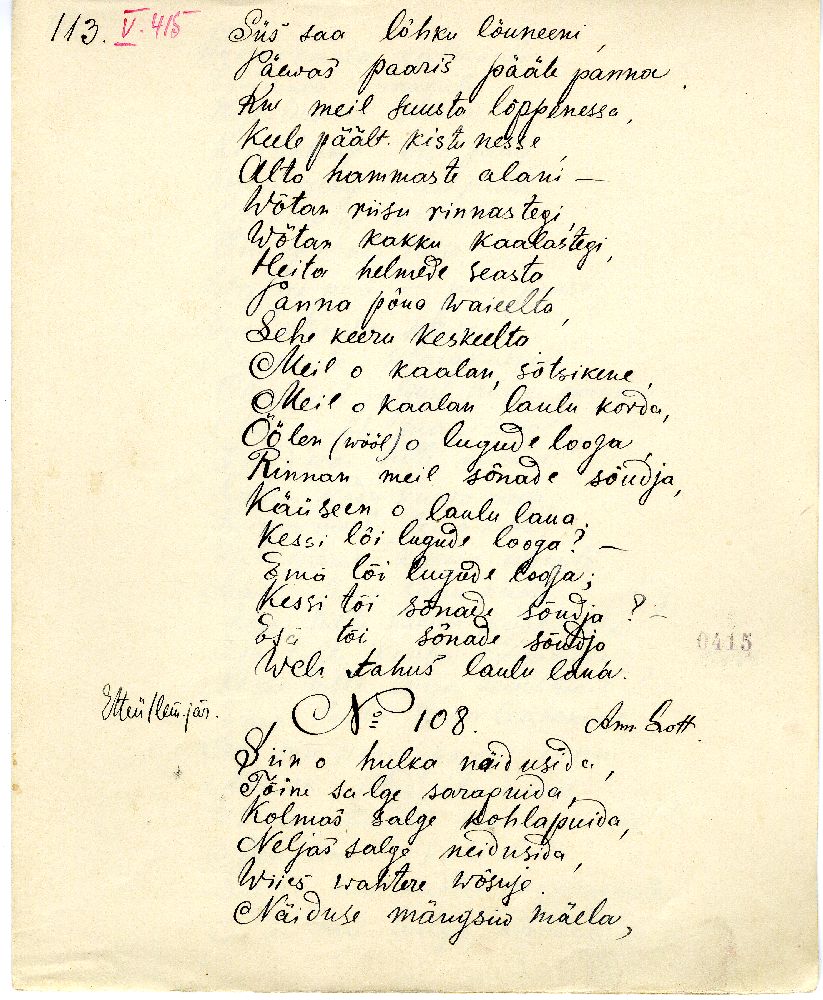 113. V. 415
Siis saa lõhku lõuneeni,
Päewas paaris pääle panna.
Kui meil suusta lõppenessa,
Keele päält kistunesse,
Alta hammaste alani —
Wõtan riisu rinnastegi,
Wõtan kakku kaalastegi,
Heita helmede seasta
Panna põua waieelta,
Sehe keeru keskeelta.
Meil o kaalan, sõtsikene,
Meil o kaalan laulu korda,
Öölen (wööl) o lugude looga,
Rinnan meil sõnade sõudja,
Käüseen o laulu laua.
Kessi lõi lugude looga? —
Ema lõi lugude looga;
Kessi tõi sõnade sõudja? —
Esä tõi sõnade sõudja
Weli tahus laulu laua.
0415
No 108. Ann Lott.
Siin o hulka näidusida,
Tõine salge sarapuida,
Kolmas salge pohlapuida,
Neljas salge neidusida,
Wiies wahtere wõsuje.
Näiduse mängsiw mäela,